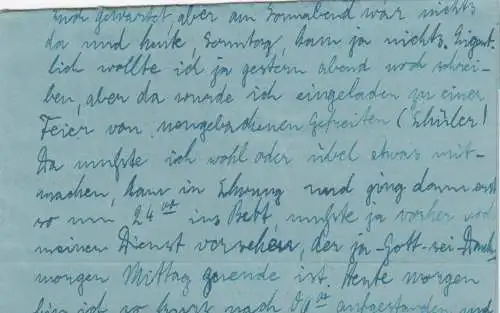 Euch gewartet, aber am Sonnabend war nichts
da und heute, Sonntag, kam ja nichts. Eigent-
lich wollte ich ja gestern abend noch schrei-
ben, aber da wurde ich eingeladen zu einer
Feier von neugebackenen Gefreiten (Schüler)
Da mußte ich wohl oder übel etwas mit-
machen, kam in Schwung und ging dann erst
so um 24 00 ins Bett, mußte ja vorher noch
meinen Dienst versehen, der ja Gott-sei-Dank
morgen Mittag zuende ist. Heute morgen
bin ich so kurz nach 09 00 aufgestanden und